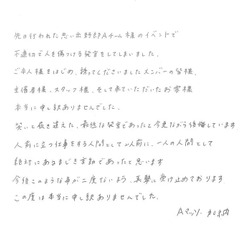 先日行われた思い出野郎Aチーム様のイベントで
不適切で人を傷つける発言をしてしまいました。
ご本人様をはじめ、携わってくださいましたメンバーの皆様、
主催者様、スタッフ様、そして来ていただいたお客様
本当に申し訳ありませんでした。
笑いと履き違えた、最低な発言であったと今更ながら後悔しています
人前に立つ仕事をする人間として以前に、一人の人間として
絶対にあるまじき言動であったと思います
今後このような事が二度とないよう、真摯に受け止めております。
この度は本当に申し訳ありませんでした。
Aマッソ